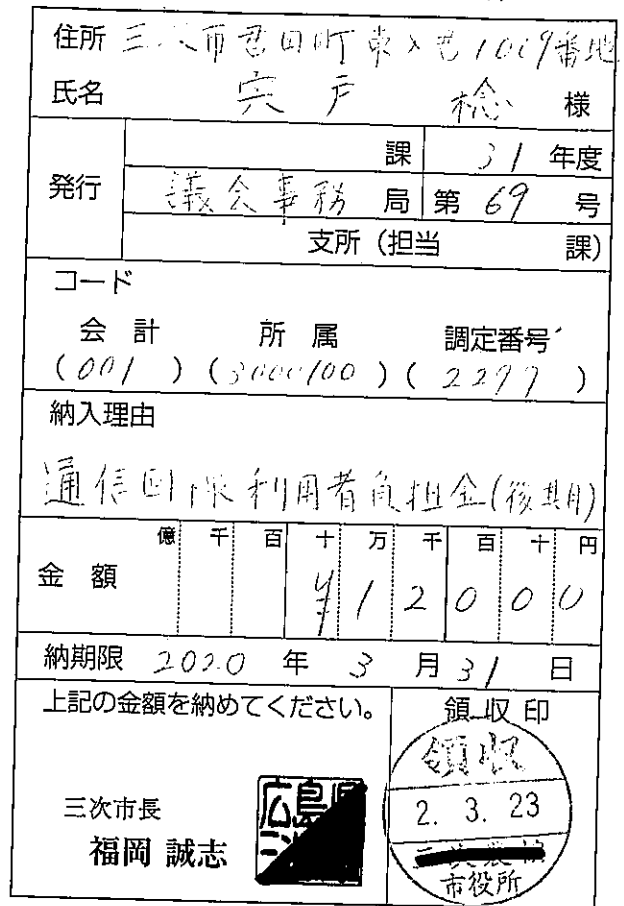 住所 三次市君田町東入君1019番地
氏名 宍戸 稔 様
発行
課 31 年度
議会事務 局 第 69 号
支所 (担当 課)
コード
会計 所属 調定番号
(001) (3000100) (2277)
納入理由
通信回線利用者負担金(後期)
億 千 百 十 万 千 百 十 円
金額 ¥12000
納期限 2020 年 3 月 31 日
上記の金額を納めてください。
三次市長
福岡 誠志
領収印
領収
2. 3. 23
市役所